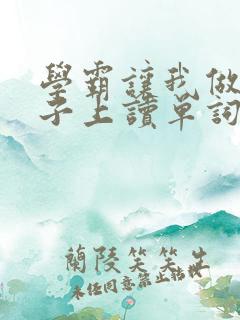 學霸讓我做
子上讀單詞
蘭陵笑笑生
未经同意禁止转载